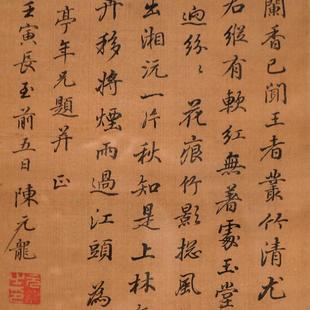 蘭香已聞王者叢竹清尤
石縱有軟紅無著處玉堂
迥紛〻花痕竹影揔風
出湘沅一片秋知是上林
升移將煙雨過江頭為
亭年兄題并正
壬寅長至前五日陳元龍